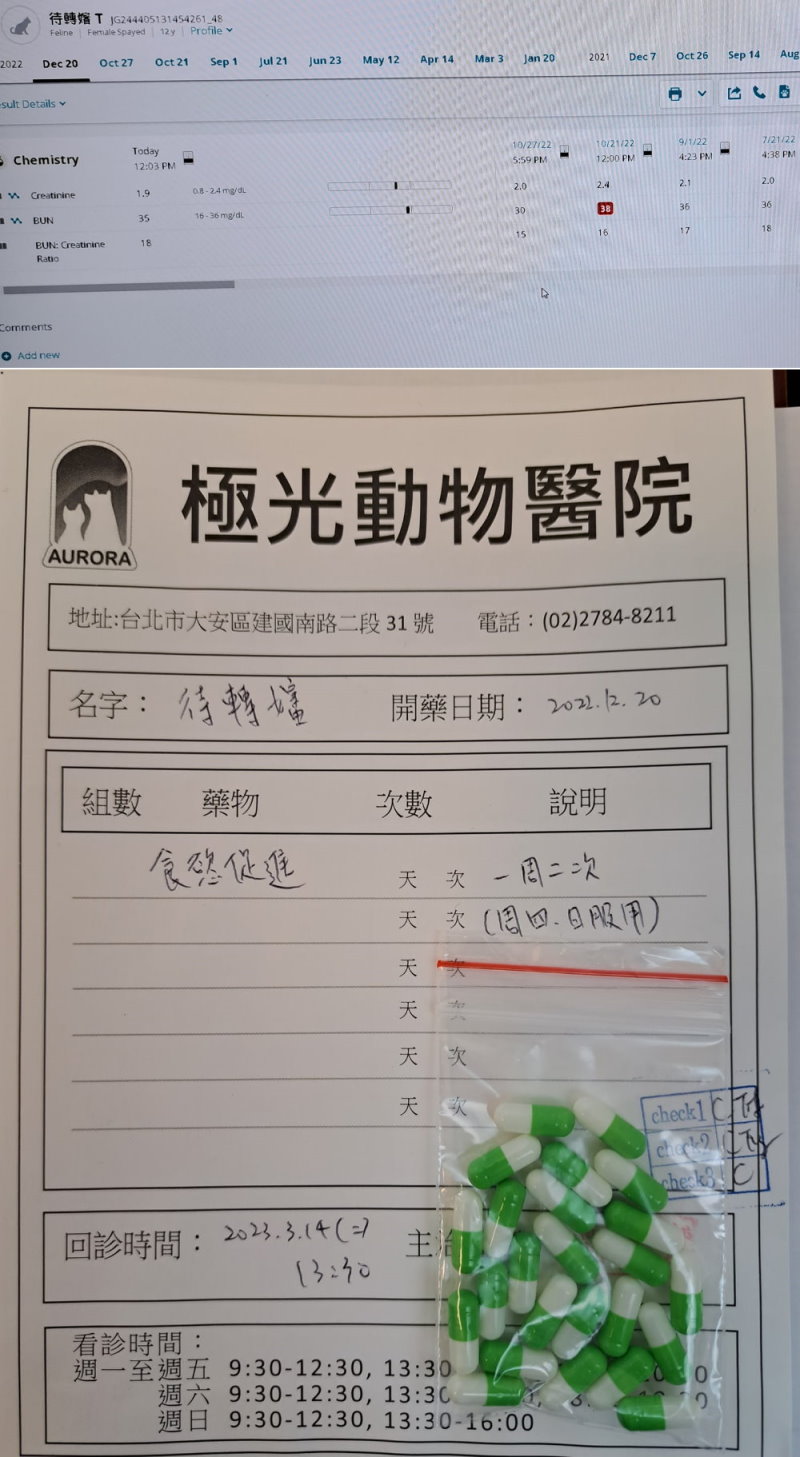 待轉嬸 T JG244405131454261_48
Feline Female Spayed 12 y Profile
2022 Dec 20 Oct 27 Oct 21 Sep 1 Jul 21 Jun 23 May 12 Apr 14 Mar 3 Jan 20 2021 Dec 7 Oct 26 Sep 14 Aug
sult Details
Chemistry Today 12:03 PM 10/27/22 5:59 PM 10/21/22 12:00 PM 9/1/22 4:23 PM 7/21/22 4:38 PM
Creatinine 1.9 0.8 - 2.4 mg/dL 2.0 2.4 2.1 2.0
BUN 35 16 - 36 mg/dL 30 38 36 36
BUN: Creatinine Ratio 18 15 16 17 18
Comments
Add new
AURORA
極光動物醫院
地址:台北市大安區建國南路二段 31 號 電話：(02)2784-8211
名字： 待轉嬸 開藥日期： 2022.12.20
組數 藥物 次數 說明
食慾促進 天 次 一周二次
天 次 (周四.日服用)
天 次
天 次
天 次
天 次
check1
check2
check3 C
回診時間： 2023.3.14(二) 主治
13:30
看診時間：
週一至週五 9:30-12:30, 13:30
週六 9:30-12:30, 13:30
週日 9:30-12:30, 13:30-16:00